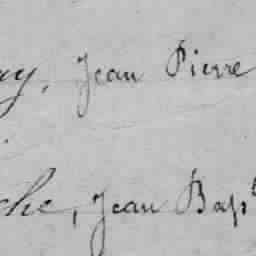 ay, Jean Pierre
che, Jean Bapt